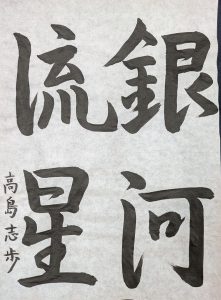 銀河
流星
高島志歩